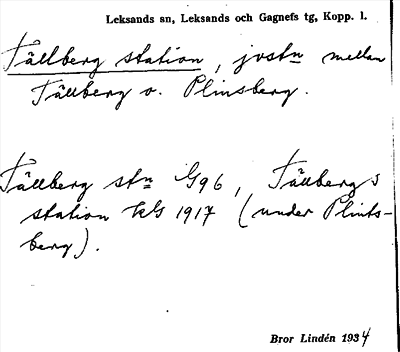 Leksands sn, Leksands och Gagnefs tg, Kopp. l.
Tällberg station, jvstn mellan
Tällberg o. Plinsberg.
Tällberg stn G96, Tällbergs
station kls 1917 (under Plints-
berg).
Bror Lindén 1934